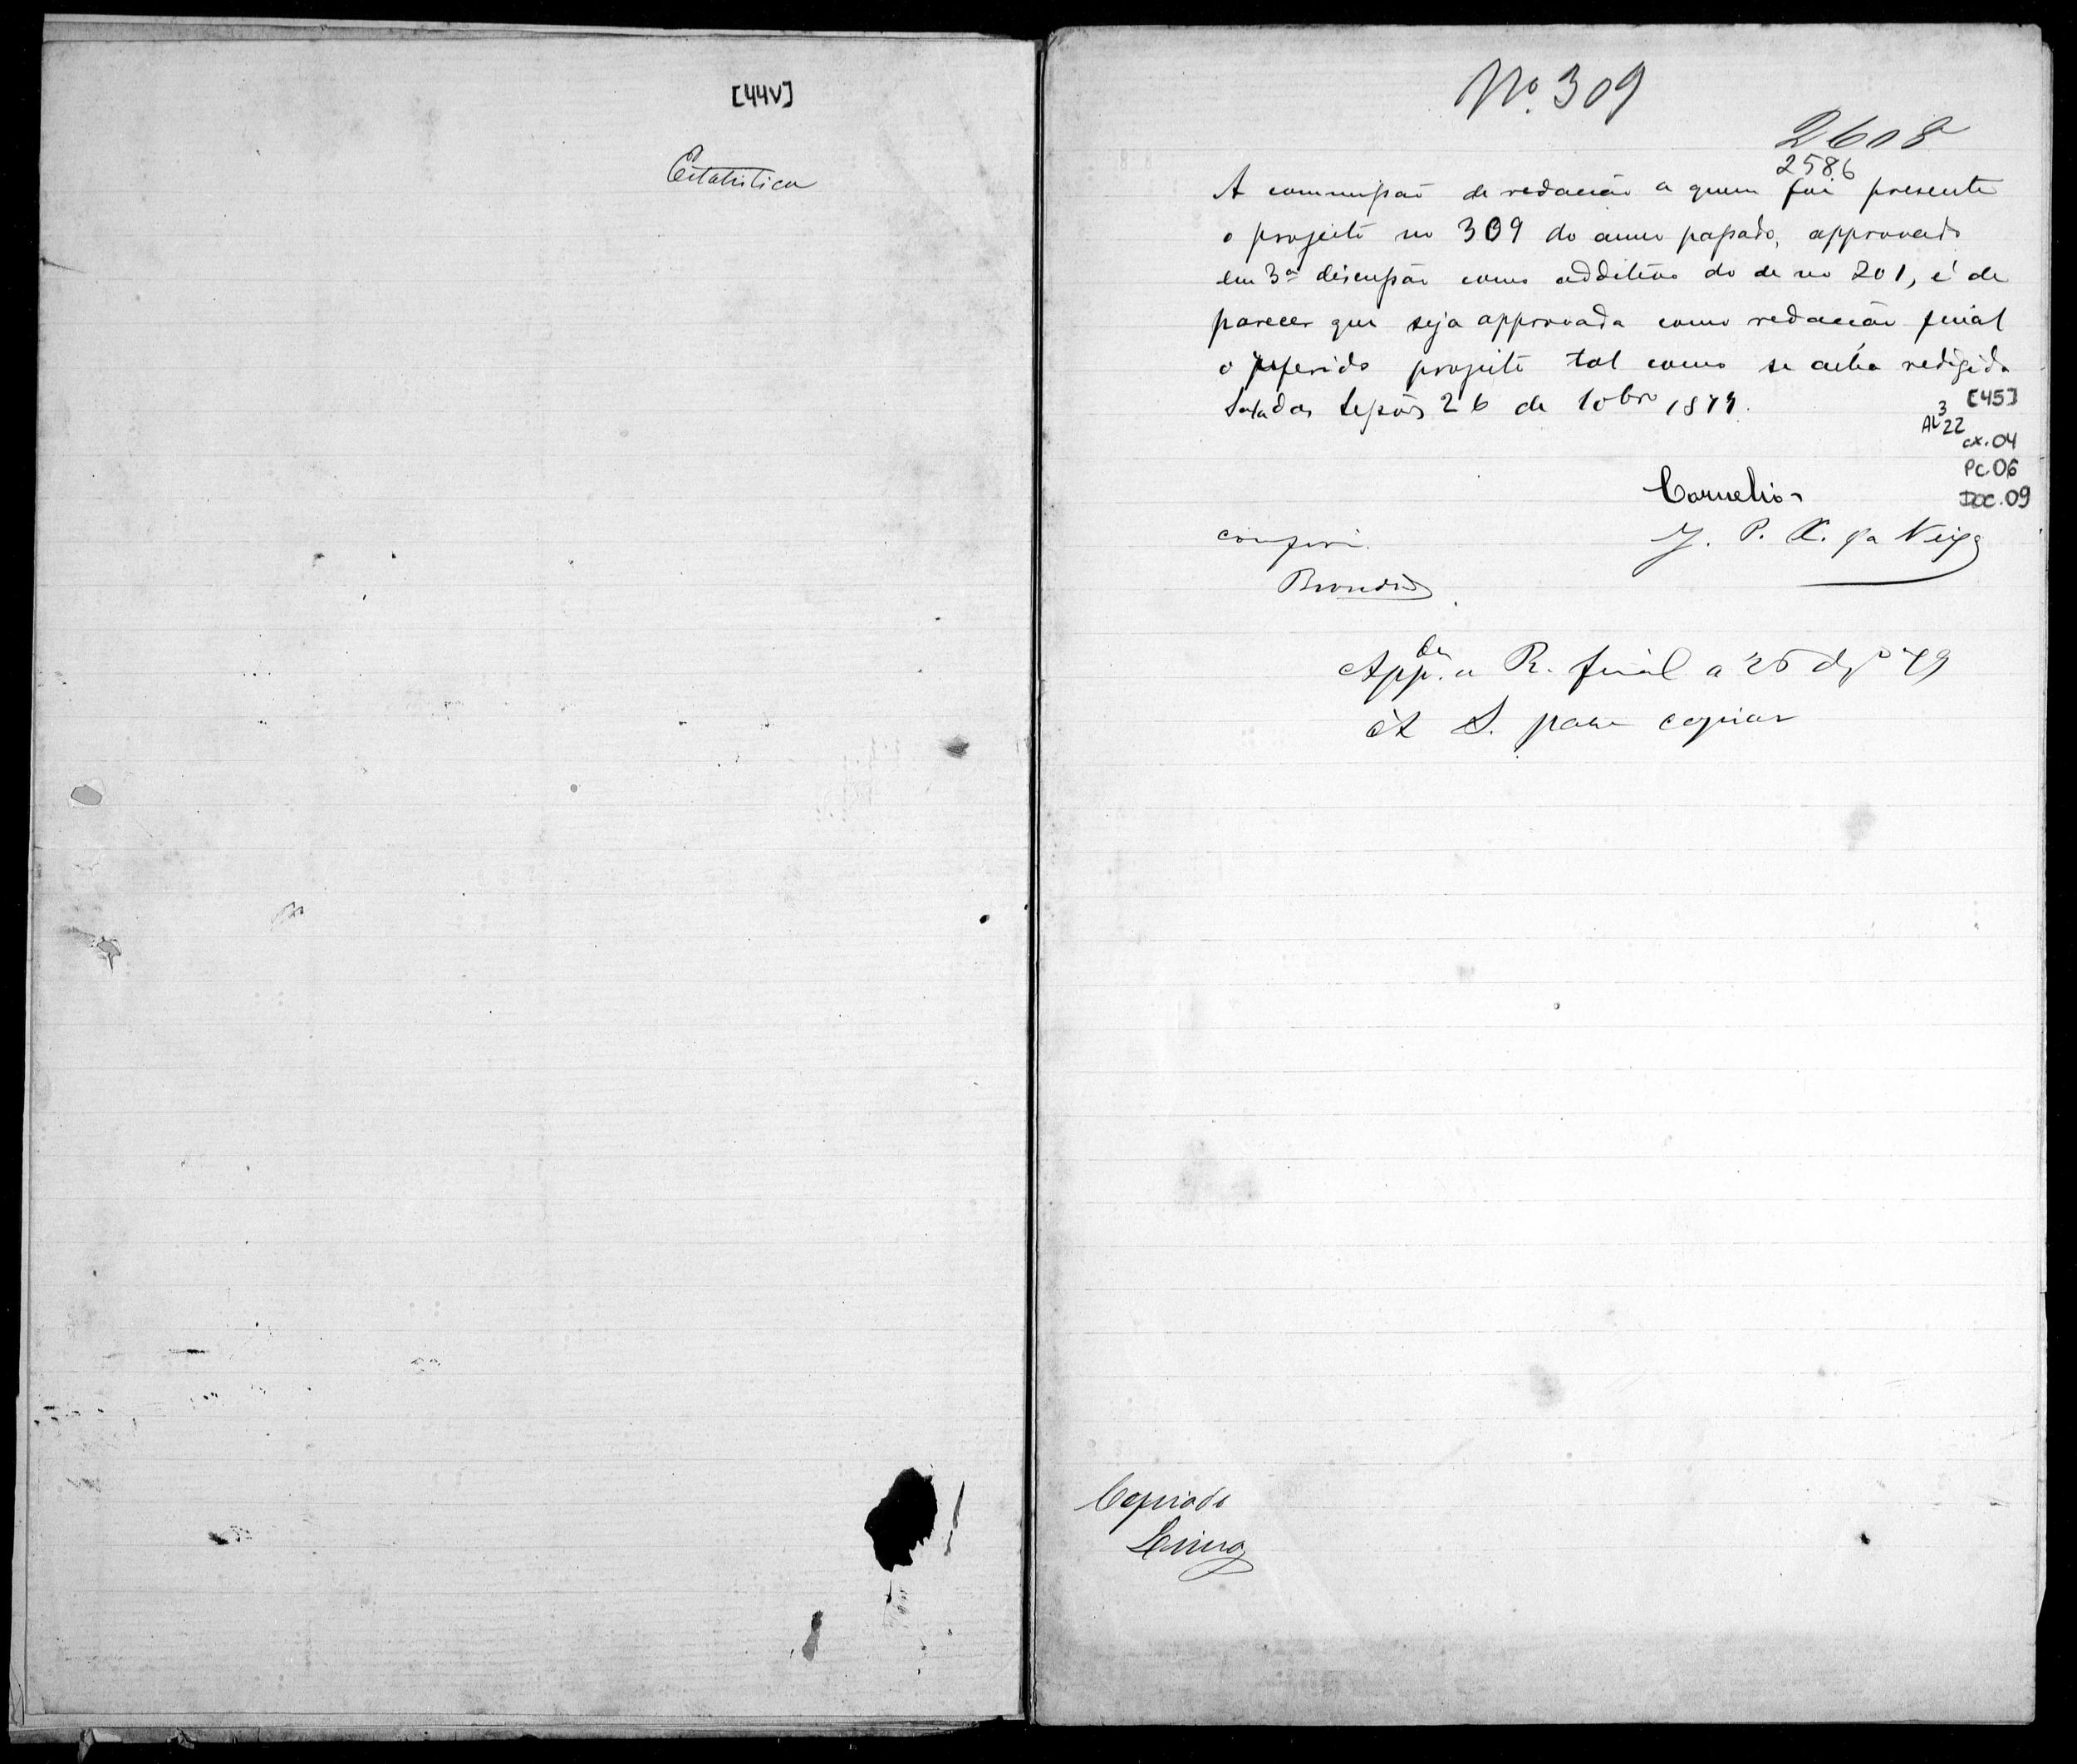 [44V]
Estatistica
Nº 309
2608
2586
A commissão de redacção a quem foi presente
o projecto no 309 do anno passado, approvado
em 3ª discussão como additivo do de no 201, é de
parecer que seja approvada como redacção final
o referido projecto tal como se acha redigido
Sala das Sessões 26 de 10bro 1879.
[45]
AL 3 22
cx.04
PC.06
DOC.09
Cornelio
conferi.
J. P. X. da Veiga
Brandão
App.da a R. final a 26 dzº 79
Á S. para copiar
Copiado